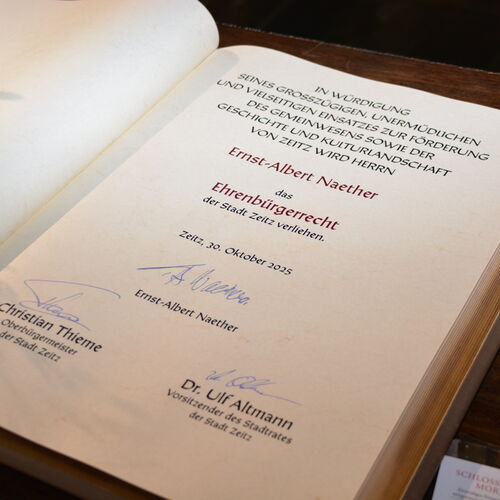 IN WÜRDIGUNG
SEINES GROSSZÜGIGEN, UNERMÜDLICHEN
UND VIELSEITIGEN EINSATZES ZUR FÖRDERUNG
DES GEMEINWESENS SOWIE DER
GESCHICHTE UND KULTURLANDSCHAFT
VON ZEITZ WIRD HERRN
Ernst-Albert Naether
das
Ehrenbürgerrecht
der Stadt Zeitz verliehen.
Zeitz, 30. Oktober 2025
Ernst-Albert Naether
Christian Thieme
Oberbürgermeister
der Stadt Zeitz
Dr. Ulf Altmann
Vorsitzender des Stadtrates
der Stadt Zeitz
SCHLOSS